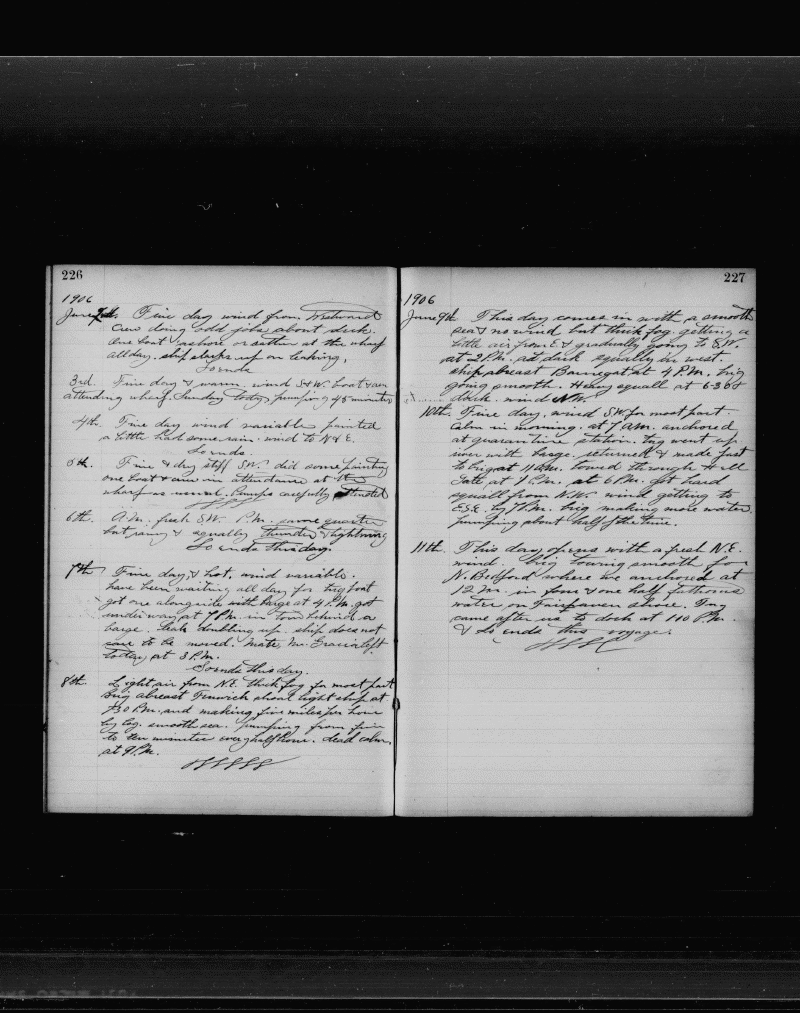 226
1906
June 2nd. Fine day wind from Westward
Crew doing odd jobs about deck.
One boat ashore or rather at the wharf
all day. ship starts up on leaking.
So ends
3rd. Fine day & warm. wind S&W. boat & crew
attending wharf. Sunday today, pumping 45 minutes
4th. Fine day wind variable painted
a little had some rain. wind to N & E.
So ends.
5th. Fine & dry stiff S.W. did some painting
one boat & crew in attendance at the
wharf as usual. Pumps carefully attended
6th. A.M. fresh S.W. P.M. same quarter
but rainy & squally thunder & lightning
So ends this day.
7th Fine day, & hot, wind variable.
have been waiting all day for tug boat
got one alongside with barge at 4 P.M. got
under way at 7 P.M. in tow behind a
barge. leak doubling up. ship does not
care to be moved. Mate, Mr. Gracia left
today at 3 P.M.
So ends this day.
8th. Light air from N.E. thick fog for most part
brig abreast Fenwick shoal light ship at
7 30 P.M. and making five miles per hour
by log. smooth sea. pumping from five
to ten minutes every half hour. dead calm,
at 9 P.M.
227
1906
June 9th This day comes in with a smooth
sea & no wind but thick fog. getting a
little air from E & gradually going to S.W.
at 2 P.M. at dark squally in west.
ship abreast Barnegat at 4 P.M. brig
going smooth. Heavy squall at 6 30 o
clock. wind N.W.
10th. Fine day. wind S.W. for most part.
calm in morning. at 7 A.M. anchored
at quarantine station. tug went up
river with barge. returned & made fast
to brig at 11 A.M. towed through Hell
Gate at 1 P.M. at 6 P.M. got hard
squall from N.W. wind getting to
E.S.E. by 7 P.M. brig making more water
pumping about half of the time.
11th. This day opens with a fresh N.E.
wind. brig towing smooth for
N. Bedford where we anchored at
12 M. in four & one half fathoms
water on Fairhaven shore. Tug
came after us to dock at 1 00 P.M.
& So ends this voyage.